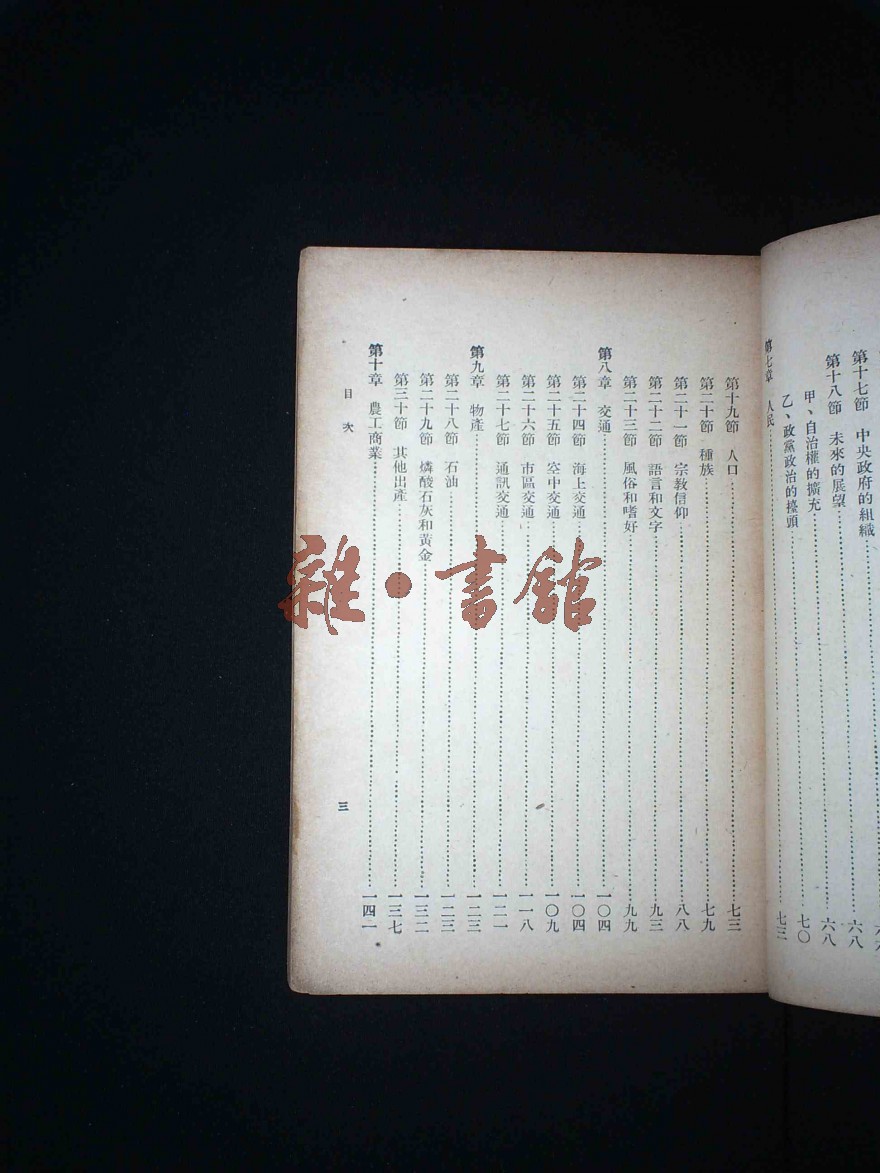 第十七節 中央政府的組織…………六八
第十八節 未來的展望…………六八
甲、自治權的擴充…………七〇
乙、政黨政治的擡頭
第七章 人民…………七三
第十九節 人口…………七三
第二十節 種族…………七九
第二十一節 宗教信仰…………八八
第二十二節 語言和文字…………九三
第二十三節 風俗和嗜好…………九九
第八章 交通…………一〇四
第二十四節 海上交通…………一〇四
第二十五節 空中交通…………一〇九
第二十六節 市區交通…………一一八
第二十七節 通訊交通…………一二一
第九章 物產…………一二三
第二十八節 石油…………一二三
第二十九節 燐酸石灰和黃金…………一三二
第三十節 其他出產…………一三七
第十章 農工商業…………一四一
目次
三
雜·書館